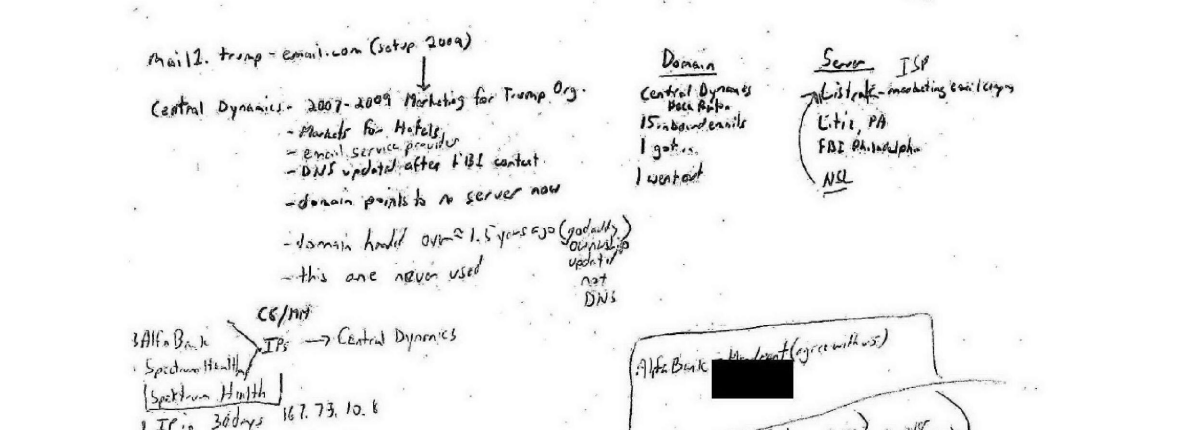 mail1.trump-email.com (setup 2009)
Central Dynamics - 2007-2009 Marketing for Trump Org.
- Markets for Hotels
- email service provider
- DNS updated after FBI contact
- domain points to no server now
- domain handed over ≈ 1.5 years ago (godaddy)
ownership
updated
not
DNS
- this one never used
Domain
Central Dynamics
Boca Raton
15 inbound emails
1 got
1 went out
Server ISP
Listrak - marketing email company
Litiz, PA
FBI Philadelphia
NSL
CG/MM
3 Alfa Bank
IPs → Central Dynamics
Spectrum Health
Spektrum Health
1 IP in 30 days 167.73.10.8
Alfa Bank - Mandiant (agree with us)